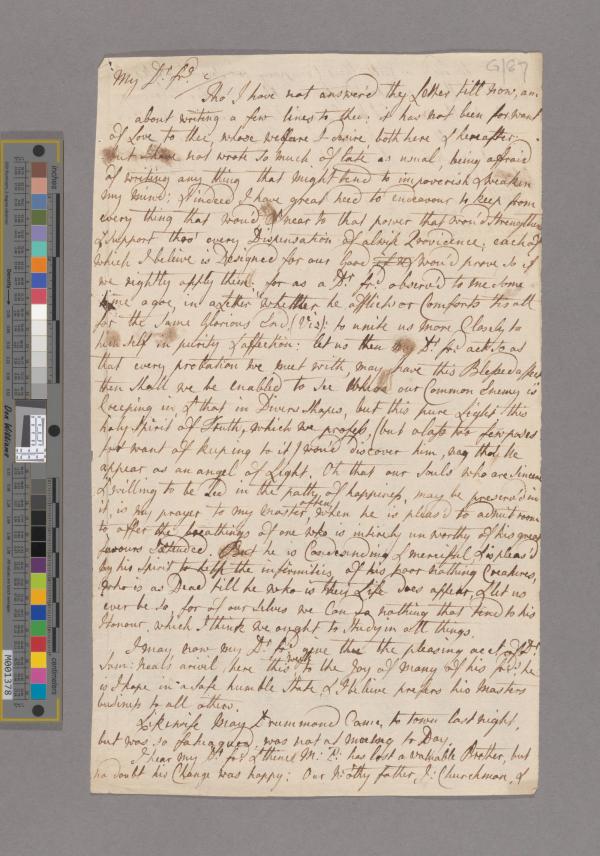 G/87
My Dr. frd.
Tho' I have not answered thy Letter till now, am
about writing a few lines to thee; it has not been for want
of Love to thee, whose welfare I desire both here & hereafter;
but I have not wrote so much of late as usual, being afraid
of writing any thing that might tend to impoverish & weaken
my mind; & indeed I have great need to endeavour to keep from
every thing that wou'd near to that power that wou'd strengthen
& support thro' every Dispensation of alwise Providence; each of
which I believe is Designed for our Good & wou'd prove so if
we rightly apply them: for as a Dr. frd. observed to me some
time agoe, in a Letter "whether he afflicts or Comforts tis all
for the same Glorious End, (Viz): to unite us more Closely to
himself in purity & affection: let us then my Dr. frd. act so as
that every probation we meet with, may have this Blessed effect
then shall we be Enabled to see where our Common Enemy is
Creeping in, & that in Divers Shapes, but this pure Light the
holy Spirit of Truth, which we profess, (but alass too few poses
for want of keeping to it) wou'd discover him, nay tho' he
appear as an angel of Light. Oh that our Souls who are Sincere
& willing to be Led in the paths of happiness, may be preserv'd in
it, is my prayer to my Master often when he is pleas'd to admit room
to offer the breathings of one who is intirely unworthy of his great
favours Extended. But he is Condesending & merciful & is pleas'd
by his Spirit to help the infirmities of his poor nothing Creatures,
who is as Dead till he who is they Life does appear, & let us
ever be so, for of our Selves we Can do nothing that tend to his
Honour, which I think we ought to Study in all things.
I may now my Dr. frd. give thee the pleasing acct. of Dr.
Sam: Neals arivel, here this week to the Joy of many of his frds. he
is I hope in a safe humble State, & I believe prefers his Masters
business to all others.
Likewise May Drummond Came to town last night,
but was so fatiagued, was not at meeting to Day.
I hear my Dr. frd. & thine M: P: has lost a valuable Brother, but
no doubt his Change was happy: Our Worthy father, J: Churchman, &
inches
centimetres
Don Williams
M001378